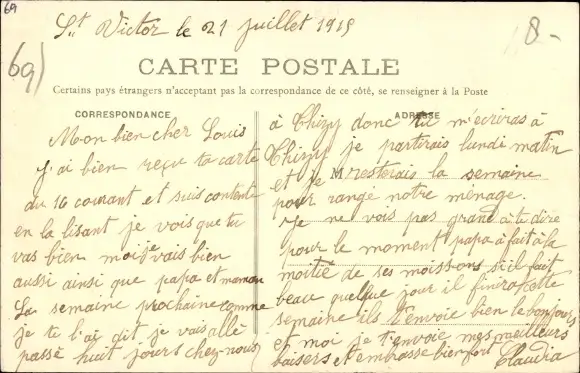 69
St Victor le 21 juillet 1915
8-
69)
CARTE POSTALE
Certains pays étrangers n'acceptant pas la correspondance de ce côté, se renseigner à la Poste
CORRESPONDANCE
Mon bien cher Louis
j'ai bien reçu ta carte
du 16 courant et suis contente
en la lisant je vois que tu
vas bien moi je vais bien
aussi ainsi que papa et maman
La semaine prochaine comme
je te l'ai dit je vais allé
passé huit jours chez nous
ADRESSE
à Thizy donc tu m'écriras à
Thizy je partirais lundi matin
et je M resterais la semaine
pour rangé notre ménage.
Je ne vois pas grand à te dire
pour le moment papa à fait à la
moitié de ses moissons s'il fait
beau quelque jour il finira cette
semaine ils t'envoie bien le bonjour
et moi je t'envoie mes meilleurs
baisers et embrasse bien fort Claudia